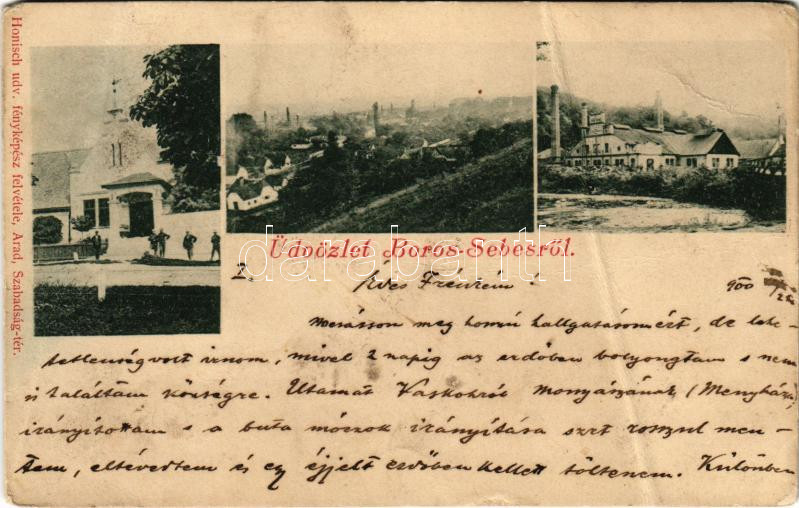 Honisch udv. fényképész felvétele, Arad, Szabadság-tér.
Üdvözlet Boros-Sebesről.
2. Édes Fréuzém! 900
Mocsásson meg hosszú hallgatásomért, de lehe-
tetlenség volt irnom, mivel 2 napig az erdőben bolyongtam s nem
is találtam községre. Utamat Vaskohról Monyászának (Menyháza)
irányítottam s a buta móczok irányítása szert rosszul men-
tem, eltévedtem és egy éjjelt erdőben kellett töltenem. Különben